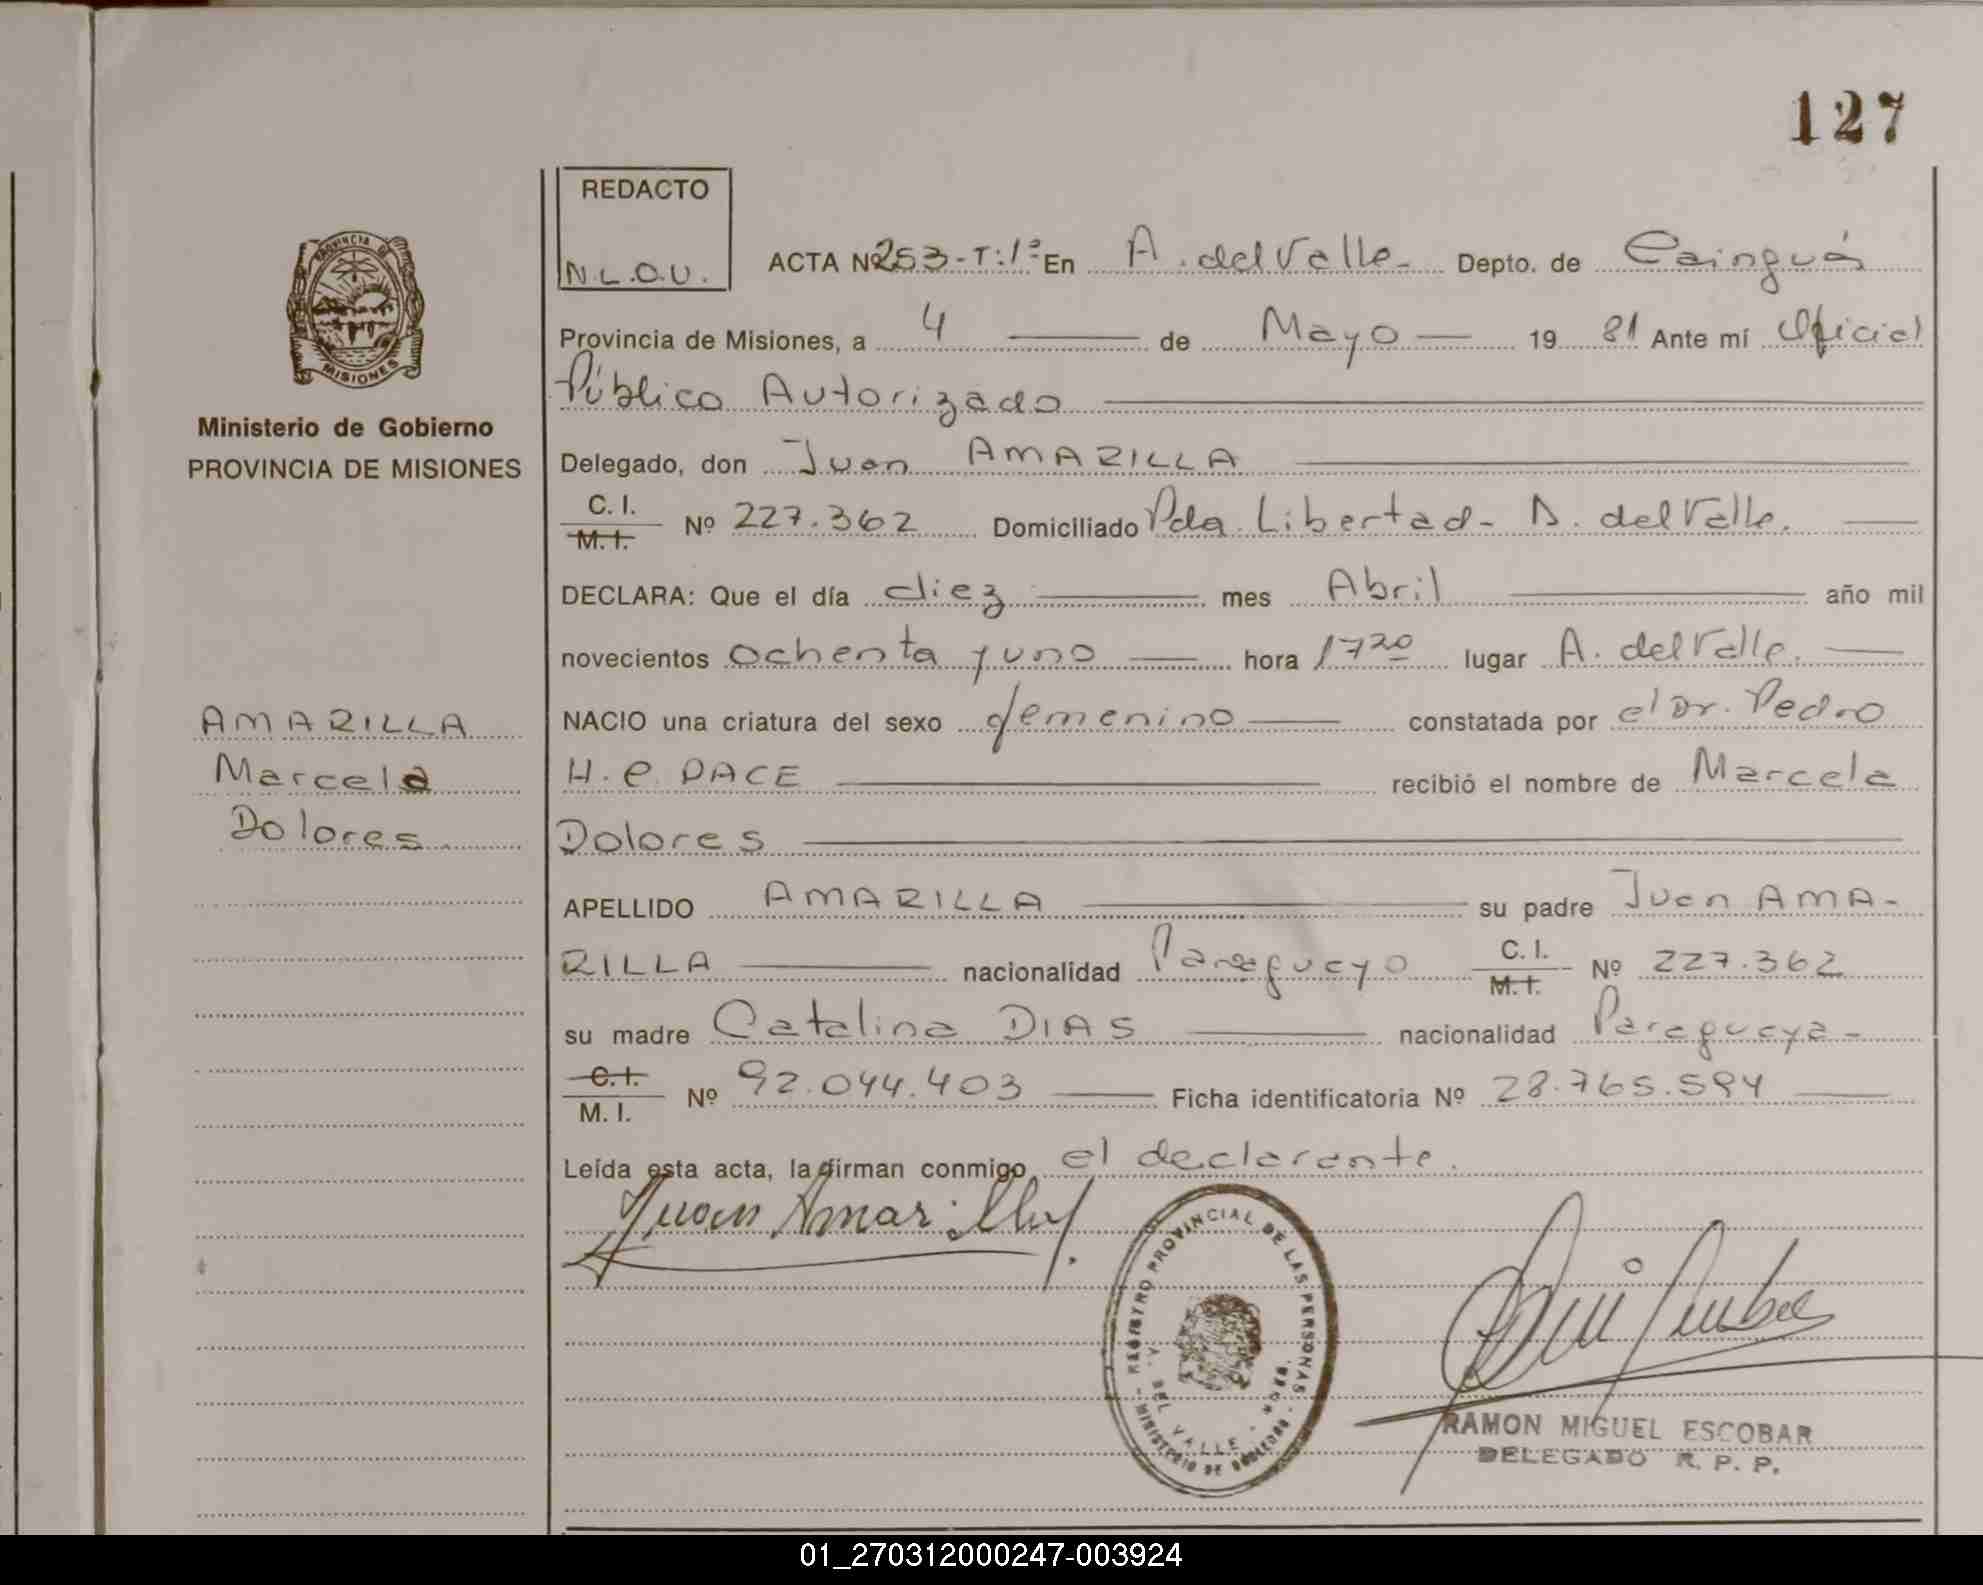 127
REDACTO
N.L.O.U.
ACTA Nº 253-T:1º En A. del Valle- Depto. de Cainguás
Provincia de Misiones, a 4 de Mayo 19 81 Ante mí Oficial
Público Autorizado
Delegado, don Juan AMARILLA
C. I.
M. I. Nº 227.362 Domiciliado Pda. Libertad- A. del Valle.
DECLARA: Que el día diez mes Abril año mil
novecientos ochenta y uno hora 17 20 lugar A. del Valle.
NACIO una criatura del sexo femenino constatada por el Dr. Pedro
H. C. PACE recibió el nombre de Marcela
Dolores
APELLIDO AMARILLA su padre Juan AMA-
RILLA nacionalidad Paraguayo C. I.
M. I. Nº 227.362
su madre Catalina DIAS nacionalidad Paraguaya-
C. I.
M. I. Nº 92.044.403 Ficha identificatoria Nº 28.765.594
Leída esta acta, la firman conmigo, el declarante.
Juan Amarilla
PROVINCIA DE
MISIONES
Ministerio de Gobierno
PROVINCIA DE MISIONES
AMARILLA
Marcela
Dolores
REGISTRO PROVINCIAL DE LAS PERSONAS
MINISTERIO DE GOBIERNO
A. DEL VALLE
RAMON MIGUEL ESCOBAR
DELEGADO R. P. P.
01_270312000247-003924